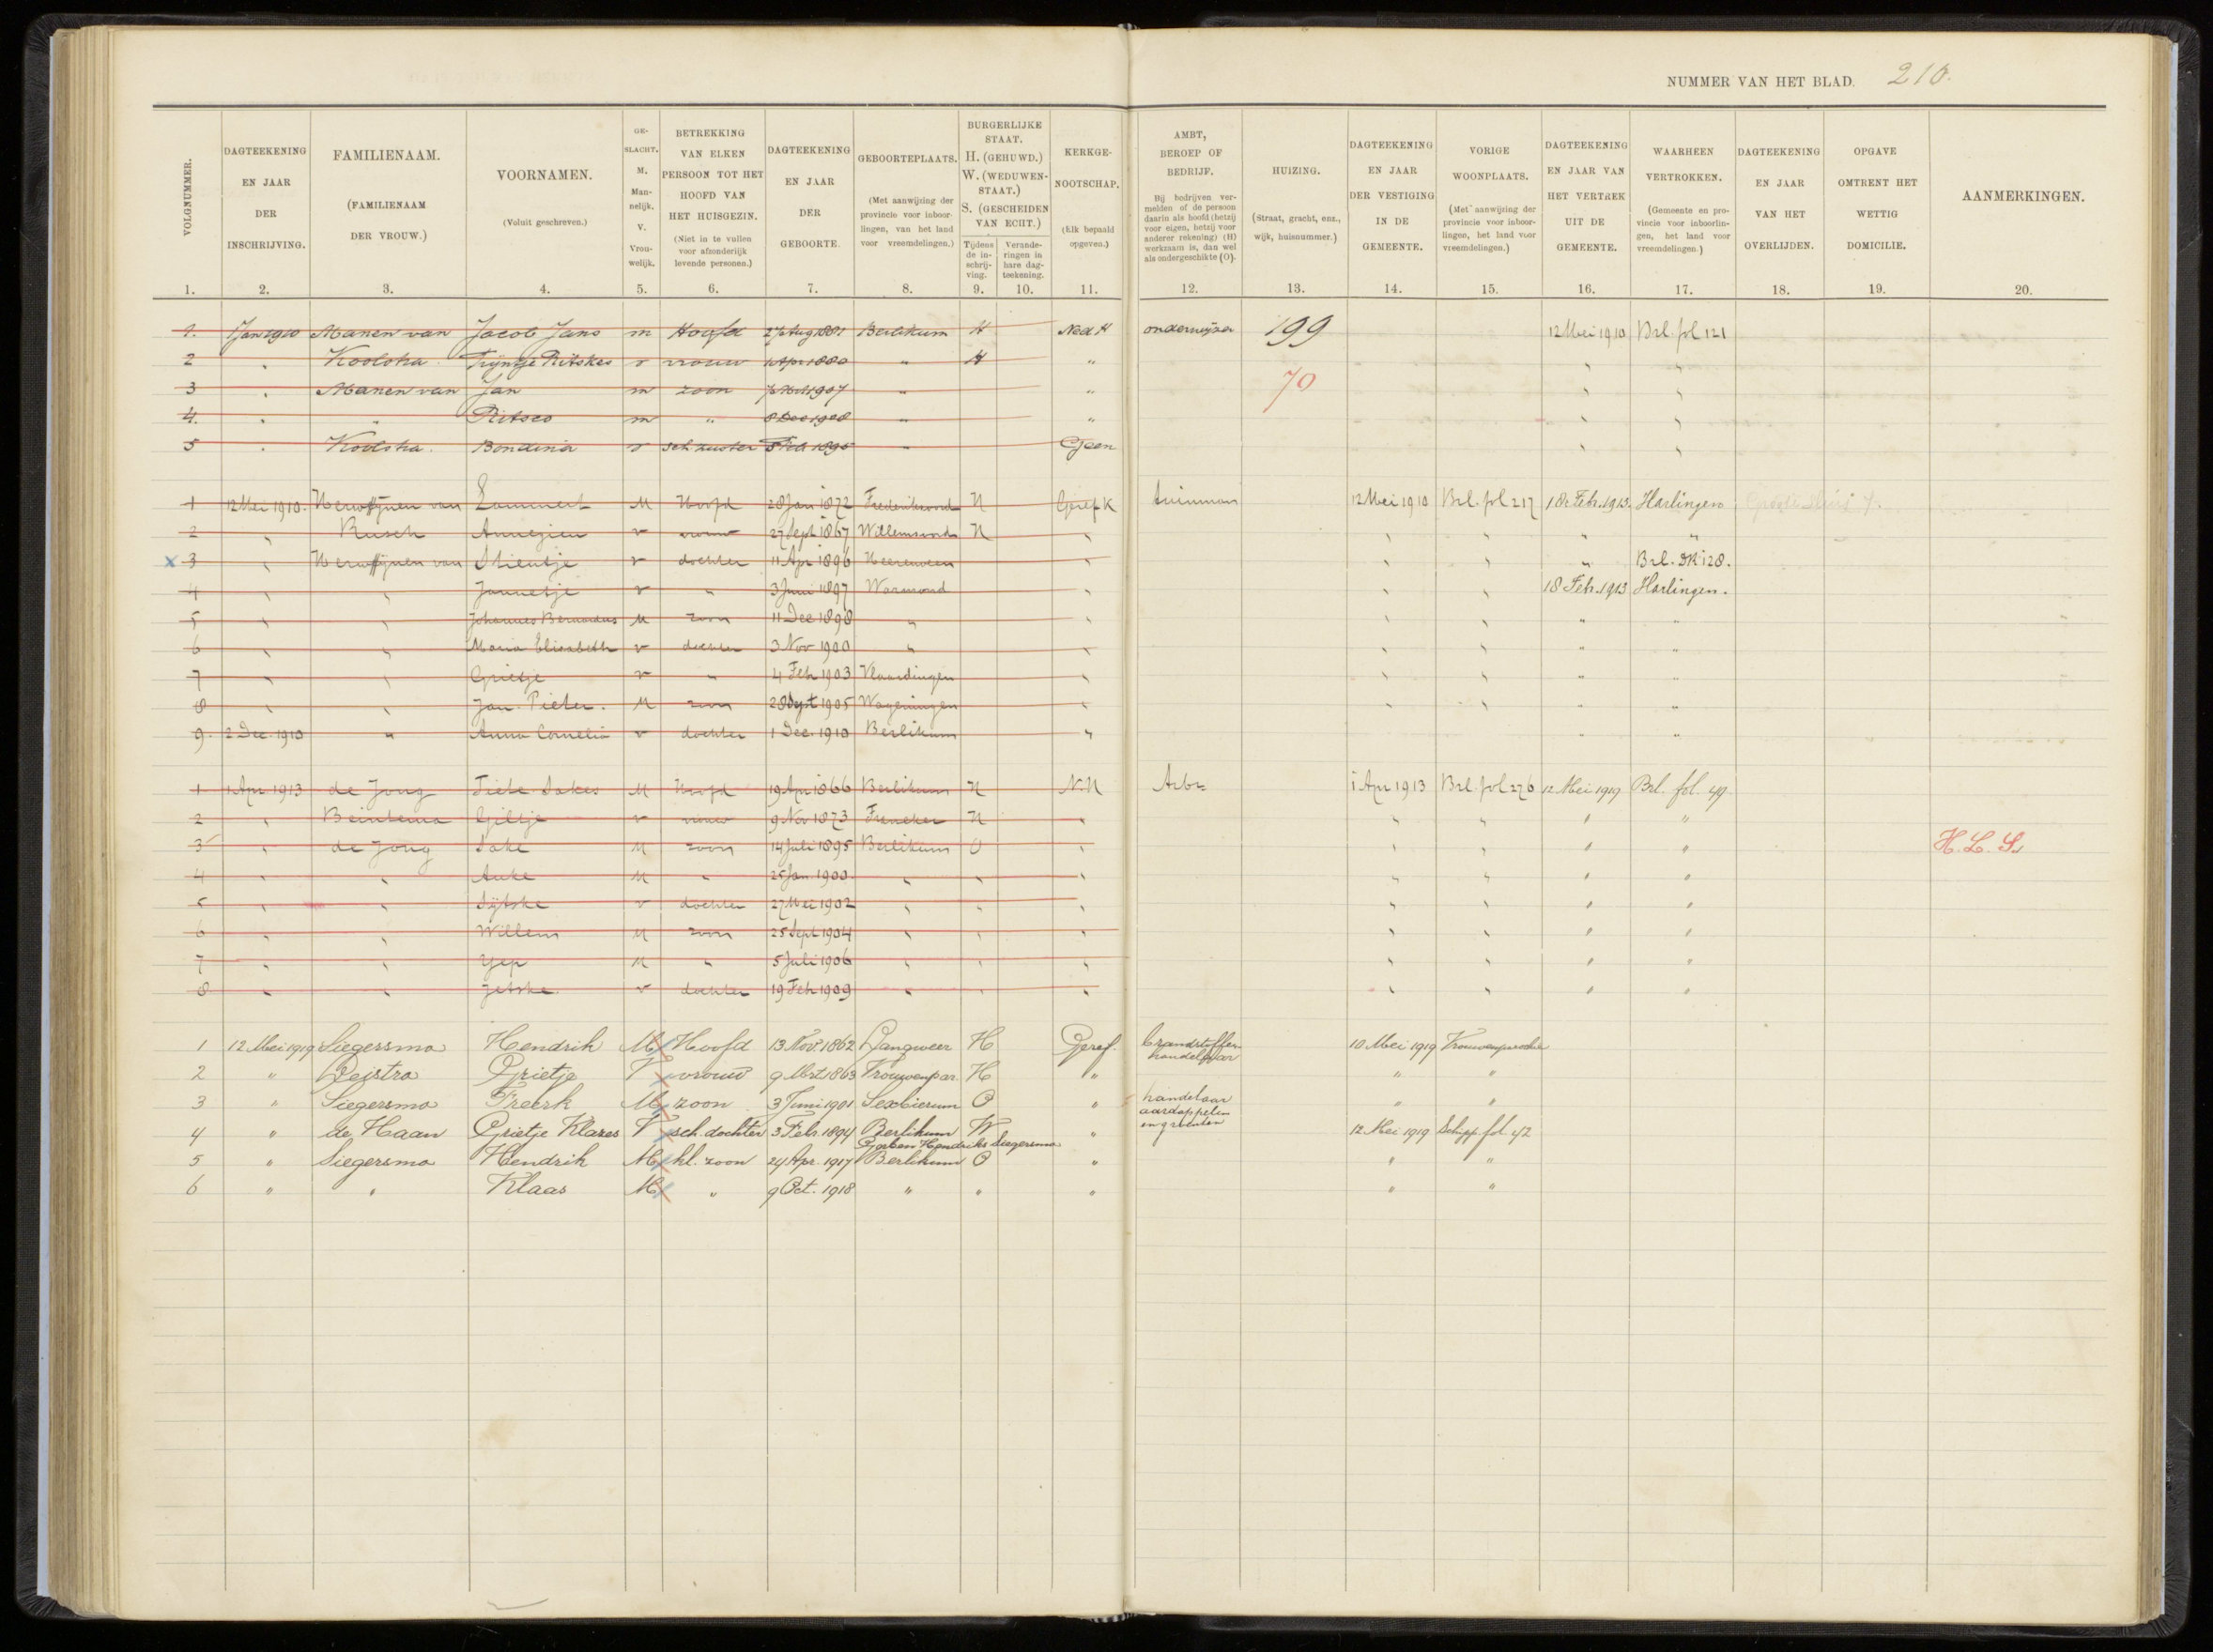 NUMMER VAN HET BLAD. 210.
VOLGNUMMER. 1.
DAGTEEKENING EN JAAR DER INSCHRIJVING. 2.
FAMILIENAAM. (FAMILIENAAM DER VROUW.) 3.
VOORNAMEN. (Voluit geschreven.) 4.
GE-SLACHT. M. Man-nelijk. V. Vrou-welijk. 5.
BETREKKING VAN ELKEN PERSOON TOT HET HOOFD VAN HET HUISGEZIN. (Niet in te vullen voor afzonderlijk levende personen.) 6.
DAGTEEKENING EN JAAR DER GEBOORTE. 7.
GEBOORTEPLAATS. (Met aanwijzing der provincie voor inboor-lingen, van het land voor vreemdelingen.) 8.
BURGERLIJKE STAAT. H. (GEHUWD.) W. (WEDUWEN-STAAT.) S. (GESCHEIDEN VAN ECHT.)
Tijdens de in-schrij-ving. 9.
Verande-ringen in hare dag-teekening. 10.
KERKGE-NOOTSCHAP. (Elk bepaald opgeven.) 11.
AMBT, BEROEP OF BEDRIJF. Bij bedrijven ver-melden of de persoon daarin als hoofd (hetzij voor eigen, hetzij voor anderer rekening) (H) werkzaam is, dan wel als ondergeschikte (O). 12.
HUIZING. (Straat, gracht, enz., wijk, huisnummer.) 13.
DAGTEEKENING EN JAAR DER VESTIGING IN DE GEMEENTE. 14.
VORIGE WOONPLAATS. (Met aanwijzing der provincie voor inboor-lingen, het land voor vreemdelingen.) 15.
DAGTEEKENING EN JAAR VAN HET VERTREK UIT DE GEMEENTE. 16.
WAARHEEN VERTROKKEN. (Gemeente en pro-vincie voor inboorlin-gen, het land voor vreemdelingen.) 17.
DAGTEEKENING EN JAAR VAN HET OVERLIJDEN. 18.
OPGAVE OMTRENT HET WETTIG DOMICILIE. 19.
AANMERKINGEN. 20.
1. 1 Jan 1910 Manen van Jacob Jans m Hoofd 27 Aug 1881 Berlikum H Ned H onderwijzer 199 12 Mei 1910 Brl. fol 121
2 " Koolstra Trijntje Ritskes v vrouw 1 Apr 1880 " H " " "
3 " Manen van Jan m zoon 1907 " " 70 " "
4. " " Ritses m " 8 Dec 1908 " " " "
5 " Koolstra. Bondina v sch zuster 1895 " Geen " "
1 12 Mei 1910. Herwijnen van Lammert M Hoofd 28 Jan 1872 Frederiksoord H Geref K tuinman 12 Mei 1910 Brl. fol 217 18 Feb. 1913. Harlingen
2 " Rusch Annegien v vrouw 27 Sept 1867 Willemsoord H " " " " "
x 3 " Herwijnen van Stientje v dochter 11 Apr 1896 Heerenveen " " " " Brl. DR 128.
4 " " Jannetje v " 3 Juni 1897 Warmond " " " 18 Feb. 1913 Harlingen.
5 " " Johannes Bernardus M zoon 11 Dec 1898 " " " " " "
6 " " Maria Elisabeth v dochter 3 Nov 1900 " " " " " "
7 " " Grietje v " 4 Feb 1903 Vlaardingen " " " " "
8 " " Jan Pieter. M zoon 1905 Wageningen " " " " "
9. 2 Dec. 1910 " Anna Cornelia v dochter 1 Dec. 1910 Berlikum " " "
1 1 Apr 1913 de Jong Fiete Sakes M Hoofd 19 Apr 1866 Berlikum H N.H Arbr 1 Apr 1913 Brl. fol 276 12 Mei 1919 Brl. fol. 49.
2 " Beintema Giltje v vrouw 9 Nov 1873 Franeker H " " " " "
3 " de Jong Sake M zoon 14 Juli 1895 Berlikum O " " " " " H. L. S.
4 " " Auke M " 25 Jan. 1900. " " " " " " "
5 " " Sijtske v dochter 27 Mei 1902 " " " " " " "
6 " " Willem M zoon 25 Sept 1904 " " " " " " "
7 " " Yep M " 5 Juli 1906 " " " " " " "
8 " " Jetske. v dochter 19 Feb 1909 " " " " " " "
1 12 Mei 1919 Siegersma Hendrik M Hoofd 13 Nov. 1862 Langweer H Geref. brandstoffen handelaar 10 Mei 1919 Vrouwenparochie
2 " Leistra Grietje V vrouw 9 Mrt 1863 Vrouwenpar. H " " "
3 " Siegersma Freerk M zoon 3 Juni 1901 Sexbierum O " handelaar aardappelen en groenten " "
4 " de Haan Grietje Klazes V sch. dochter 3 Febr. 1894 Berlikum W " 12 Mei 1919 Schipp. fol. 42
Gerben Hendriks Siegersma
5 " Siegersma Hendrik M kl. zoon 24 Apr. 1917 Berlikum O " " "
6 " " Klaas M " 9 Oct. 1918 " " " " "